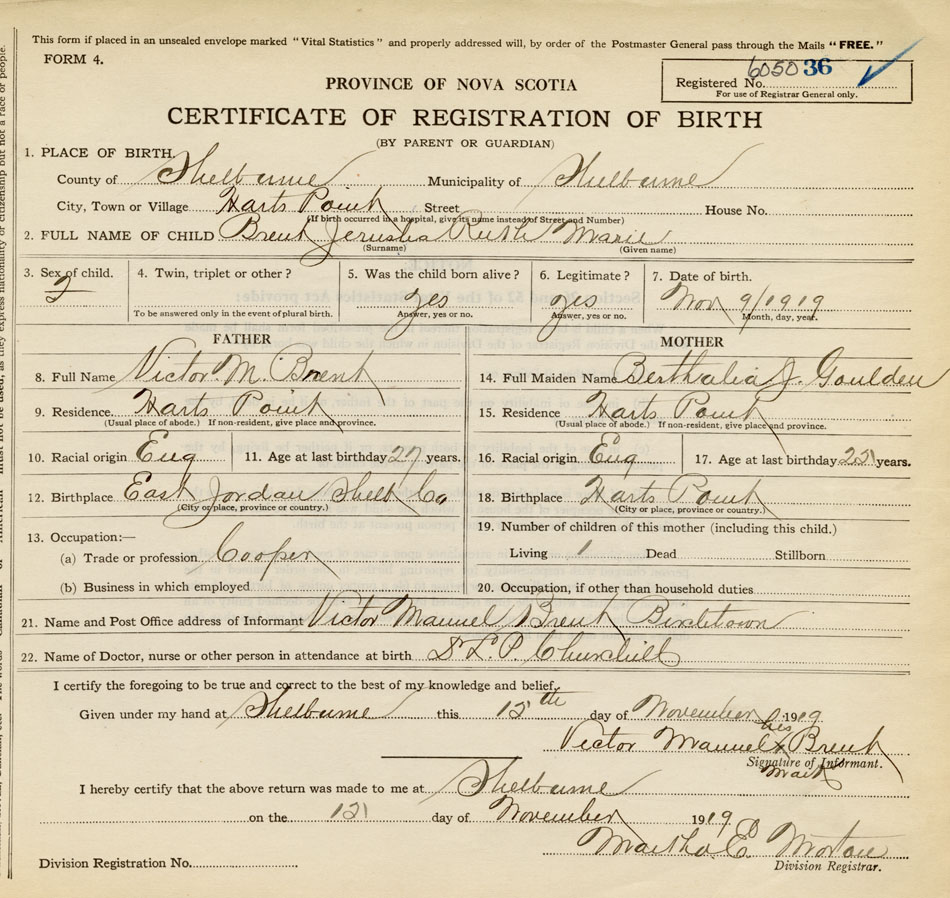 This form if placed in an unsealed envelope marked "Vital Statistics" and properly addressed will, by order of the Postmaster General pass through the Mails "FREE."
FORM 4.
6050 36
Registered No.
For use of Registrar General only.
PROVINCE OF NOVA SCOTIA
CERTIFICATE OF REGISTRATION OF BIRTH
(BY PARENT OR GUARDIAN)
1. PLACE OF BIRTH
County of Shelburne Municipality of Shelburne
City, Town or Village Harts Point Street House No.
(If birth occurred in a hospital, give its name instead of Street and Number)
2. FULL NAME OF CHILD Brent Jerusha Ruth Marie
(Surname) (Given name)
3. Sex of child. 4. Twin, triplet or other? 5. Was the child born alive? 6. Legitimate? 7. Date of birth.
yes yes Nov 9/1919
To be answered only in the event of plural birth. Answer, yes or no. Answer, yes or no. Month, day, year.
FATHER MOTHER
8. Full Name Victor. M. Brent 14. Full Maiden Name Berthalia J. Goulden
9. Residence. Harts Point 15. Residence Harts Point
(Usual place of abode.) If non-resident, give place and province. (Usual place of abode.) If non-resident, give place and province.
10. Racial origin Eng 11. Age at last birthday 27 years. 16. Racial origin Eng 17. Age at last birthday years.
12. Birthplace East Jordan Shelb Co 18. Birthplace Harts Point
(City or place, province or country.) (City or place, province or country.)
13. Occupation:— 19. Number of children of this mother (including this child.)
(a) Trade or profession Cooper Living 1 Dead Stillborn
(b) Business in which employed 20. Occupation, if other than household duties
21. Name and Post Office address of Informant Victor Manuel Brent Birchtown
22. Name of Doctor, nurse or other person in attendance at birth Dr L. P. Churchill
I certify the foregoing to be true and correct to the best of my knowledge and belief.
Given under my hand at Shelburne this 12th day of November 1919
Victor Manuel his x mark Brent
Signature of Informant.
I hereby certify that the above return was made to me at Shelburne
on the 12 day of November 1919
Martha E. Morton
Division Registrar.
Division Registration No.